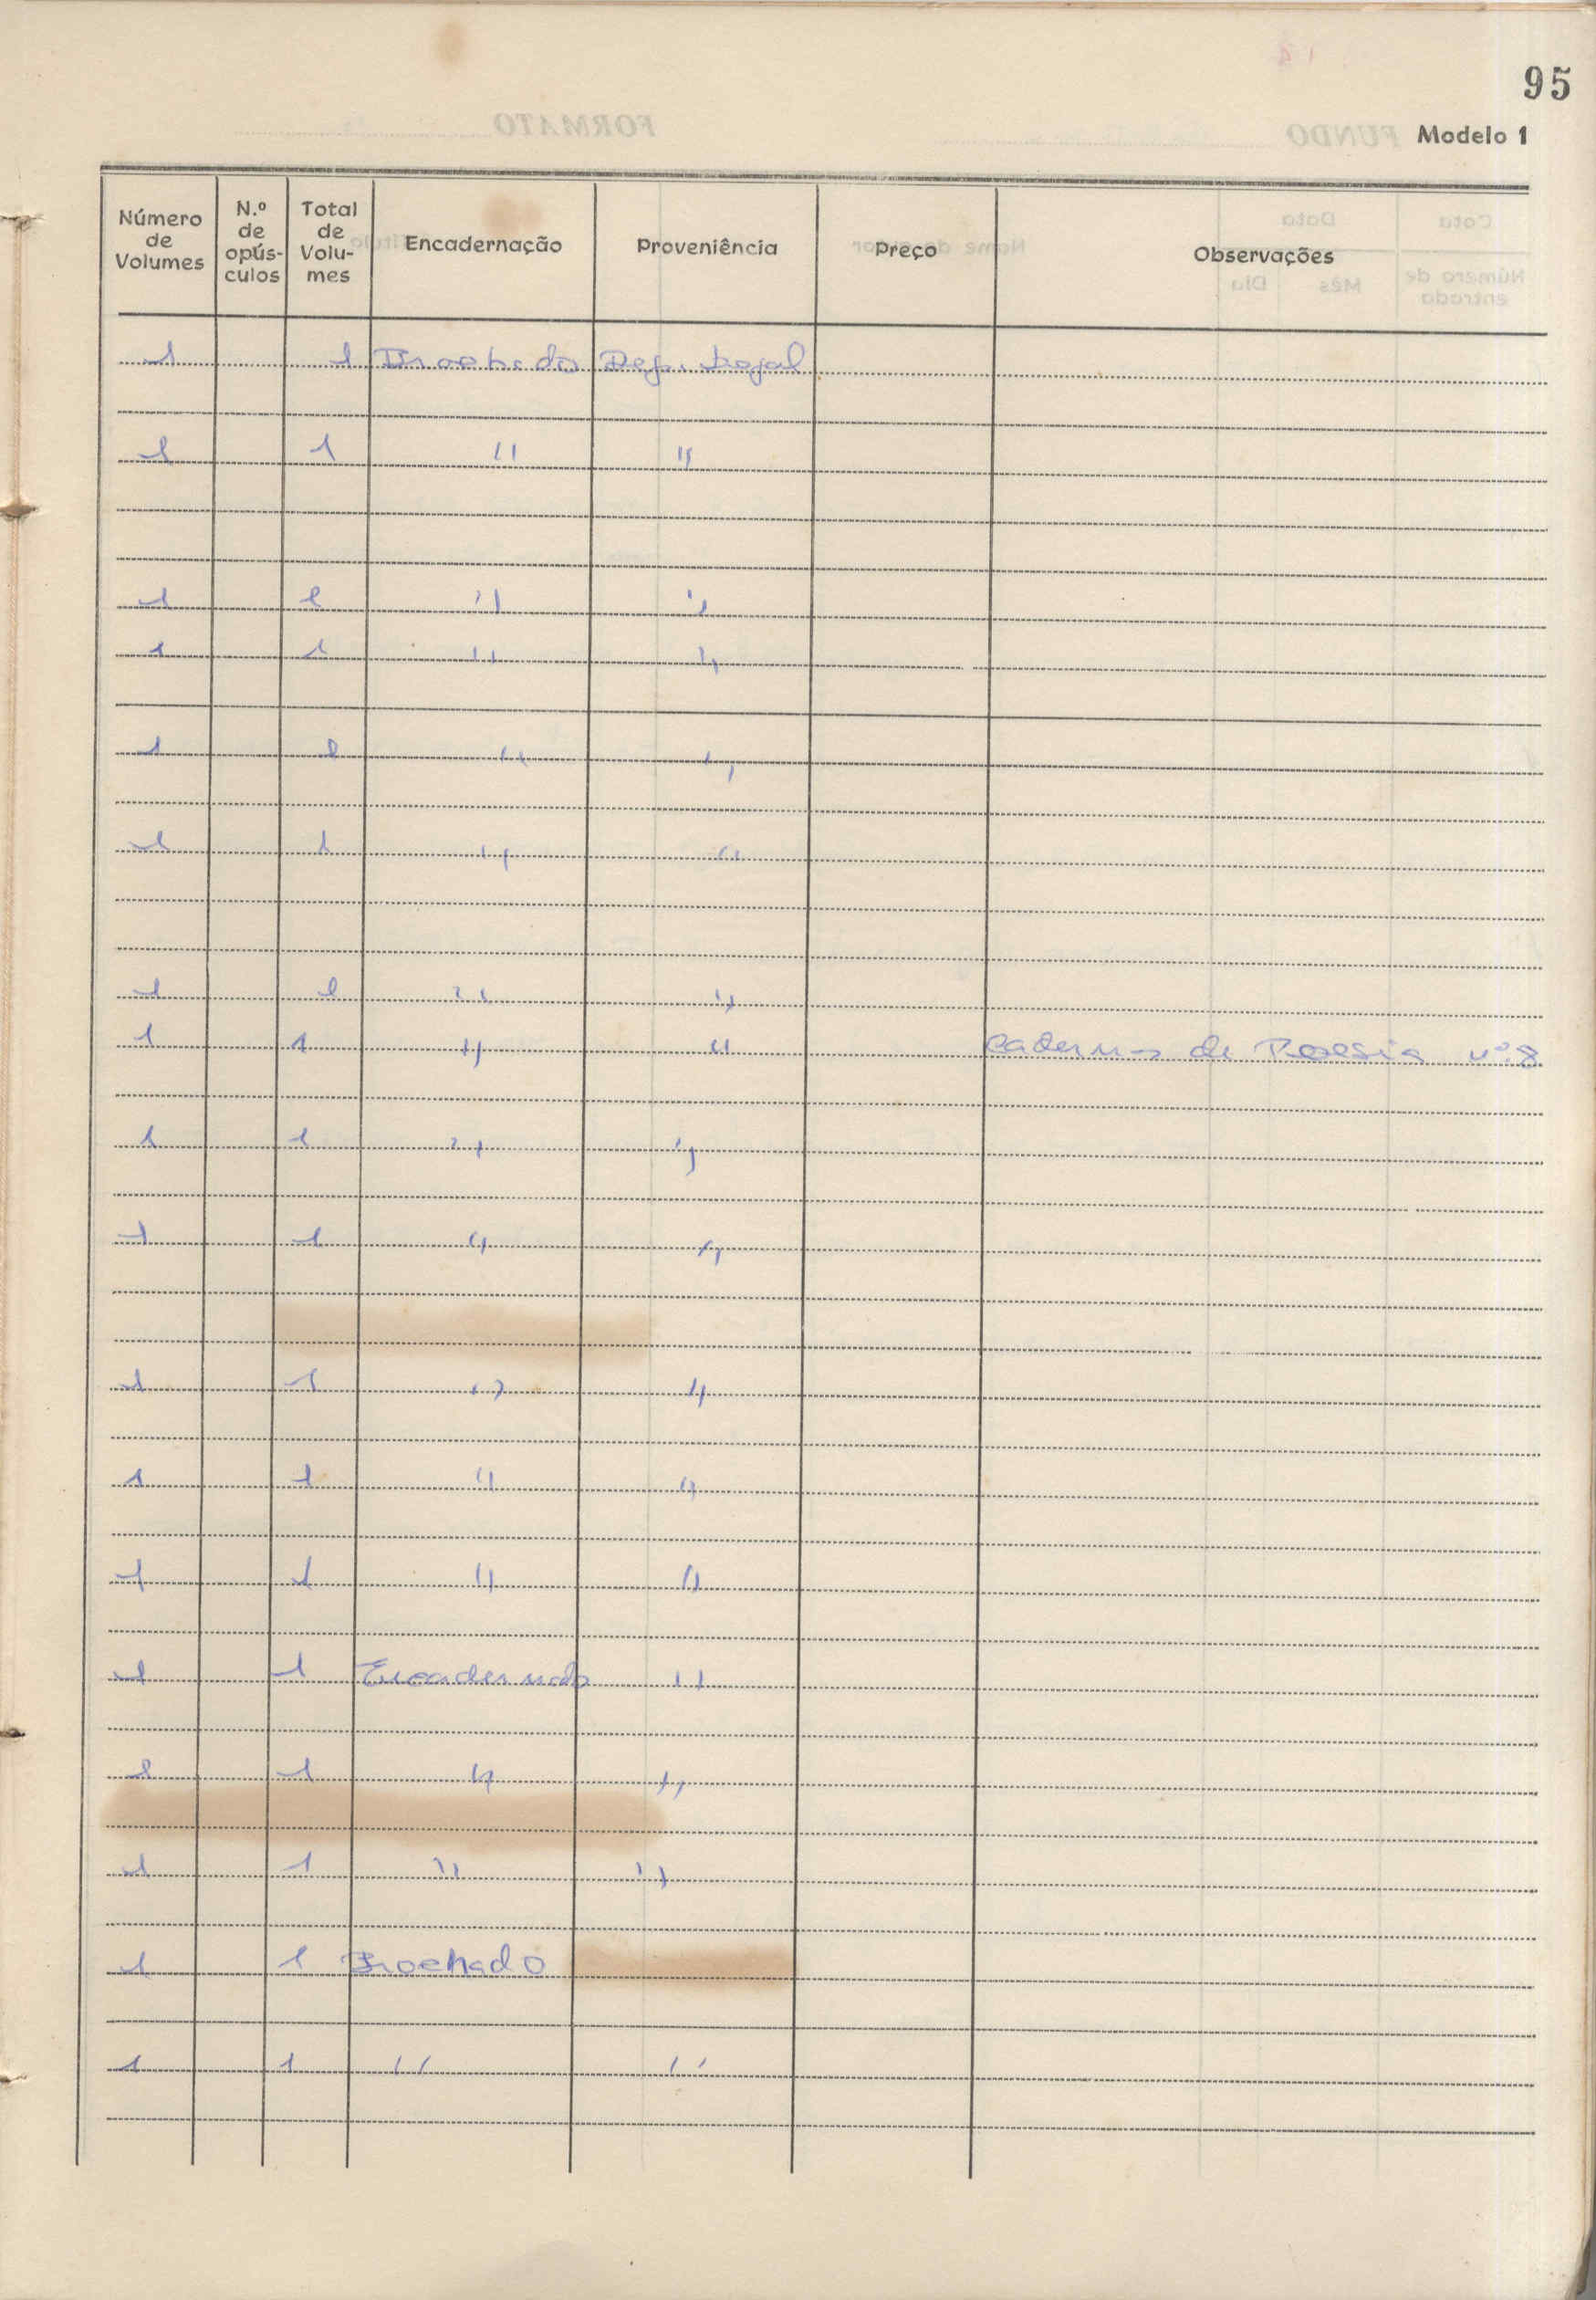 95
Modelo 1
Número de Volumes | N.º de opúsculos | Total de Volumes | Encadernação | Proveniência | Preço | Observações
1 1 Brochado Dep. Legal
1 1 " "
1 1 " "
1 1 " "
1 1 " "
1 1 " "
1 1 " "
1 1 " " Caderno de Poesia nº 8
1 1 " "
1 1 " "
1 1 " "
1 1 " "
1 1 " "
1 1 Encadernado "
1 1 " "
1 1 " "
1 1 Brochado
1 1 " "